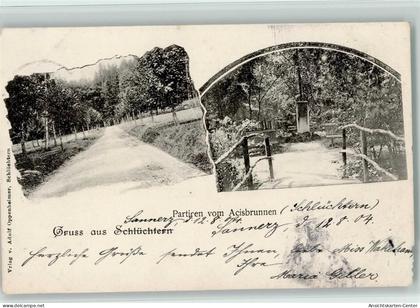 Verlag v. Adolf Oppenheimer, Schlüchtern
Partiren vom Acisbrunnen (Schlüchtern)
Gruss aus Schlüchtern
Sannerz, d. 12.8.04
Sannerz, d. 12.8.04.
Herzliche Grüsse sendet Ihnen, liebe Miss
Ihre
Maria Geller
Ansichtskarten-Center